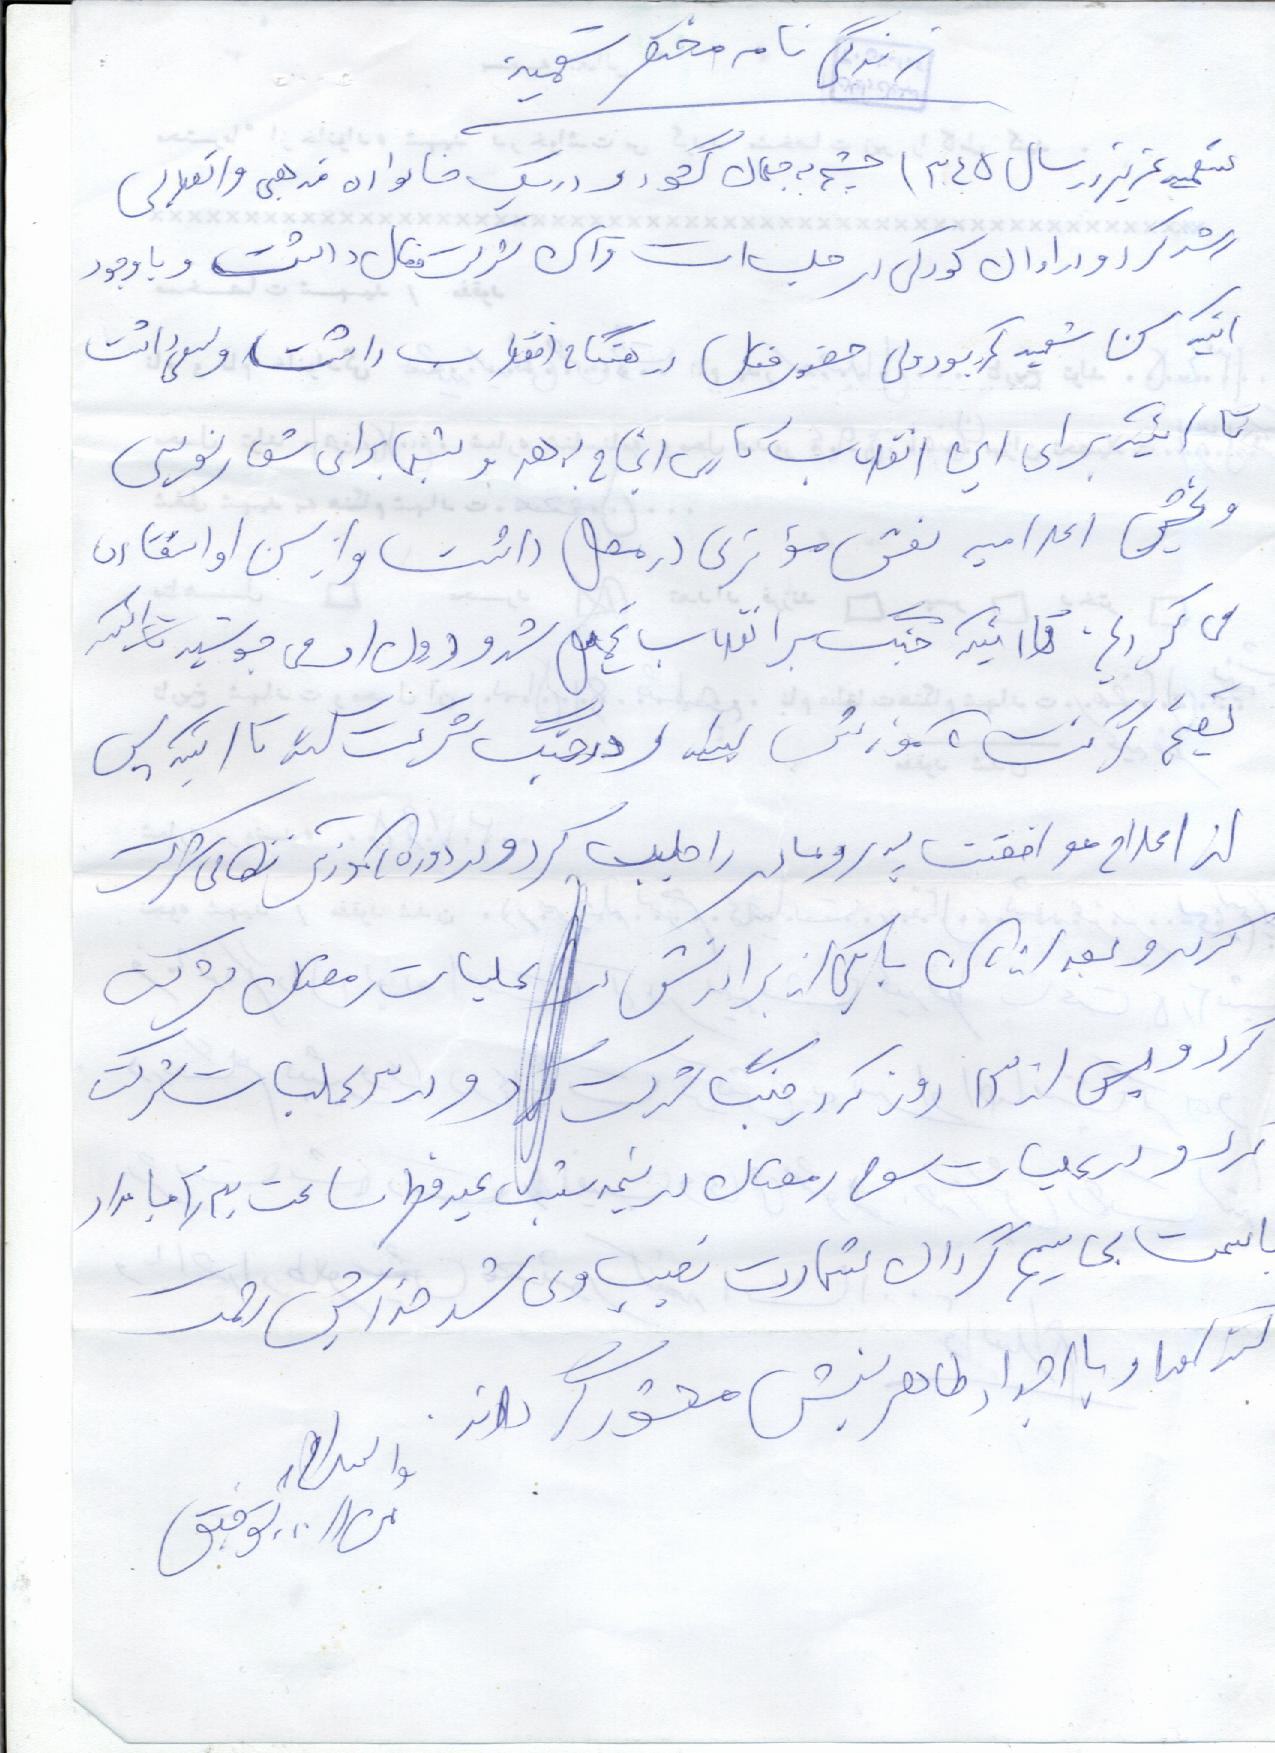 زندگی نامه مختصر شهید
شهید عزیز در سال ۱۳۴۵ چشم به جهان گشود و در یک خانواده مذهبی و انقلابی
رشد کرد و از اوان کودکی در جلسات قرآن شرکت فعال داشت و با وجود
اینکه سن شهید کم بود ولی حضور فعال در هنگام انقلاب داشت و سعی داشت
تا اینکه برای این انقلاب کاری انجام بدهد و شبها برای شعار نویسی
و پخش اعلامیه نقش مؤثری در محل داشت و از سن او استفاده
می کردیم تا اینکه جنگ بر انقلاب تحمیل شد و در دل او می جوشید تا اینکه
تصمیم گرفت آموزش ببیند و در جنگ شرکت کند تا اینکه پس
از اعلام موافقت پدر و مادر را جلب کرد و در دوره آموزش نظامی شرکت
کرد و بعد از آن با یکی از برادرانش در عملیات رمضان شرکت
کرد و پس از ۱۳ روز که در جنگ شرکت کرد و در ۳ عملیات شرکت
کرد و در عملیات سوم رمضان در نیمه شب عید فطر ساعت ۳ بامداد
با سمت بی سیم چی گردان شهادت نصیب وی شد خدایش رحمت
کند او را و با اجداد طاهرینش محشور گرداند.
والسلام
من ا... توفیق